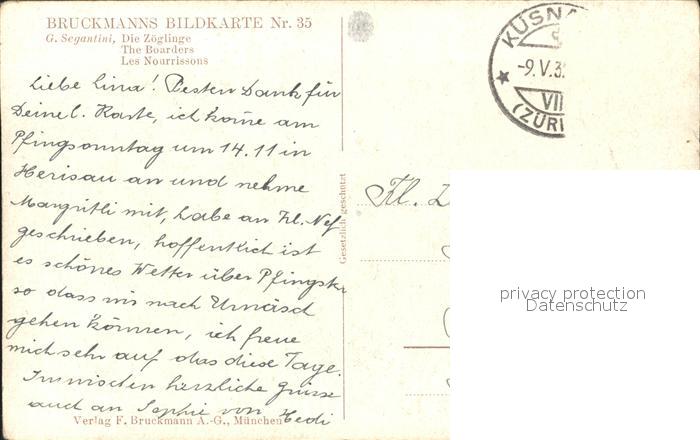 BRUCKMANNS BILDKARTE Nr. 35
G. Segantini, Die Zöglinge
The Boarders
Les Nourrissons
Liebe Lina! Besten Dank für
Deine l. Karte, ich kome am
Pfingsonntag um 14.11 in
Herisau an und nehme
Margritli mit, habe an Frl. Nef
geschrieben, hoffentlich ist
es schönes Wetter über Pfingsten
so dass wir nach Urnäsch
gehen können, ich freue
mich sehr auf das diese Tage.
Inzwischen herzliche Grüsse
auch an Sophie von Hedi
Verlag F. Bruckmann A.-G., München
Gesetzlich geschützt
KÜSNA
-9.V.3
VII
(ZÜRI
Frl.
privacy protection
Datenschutz